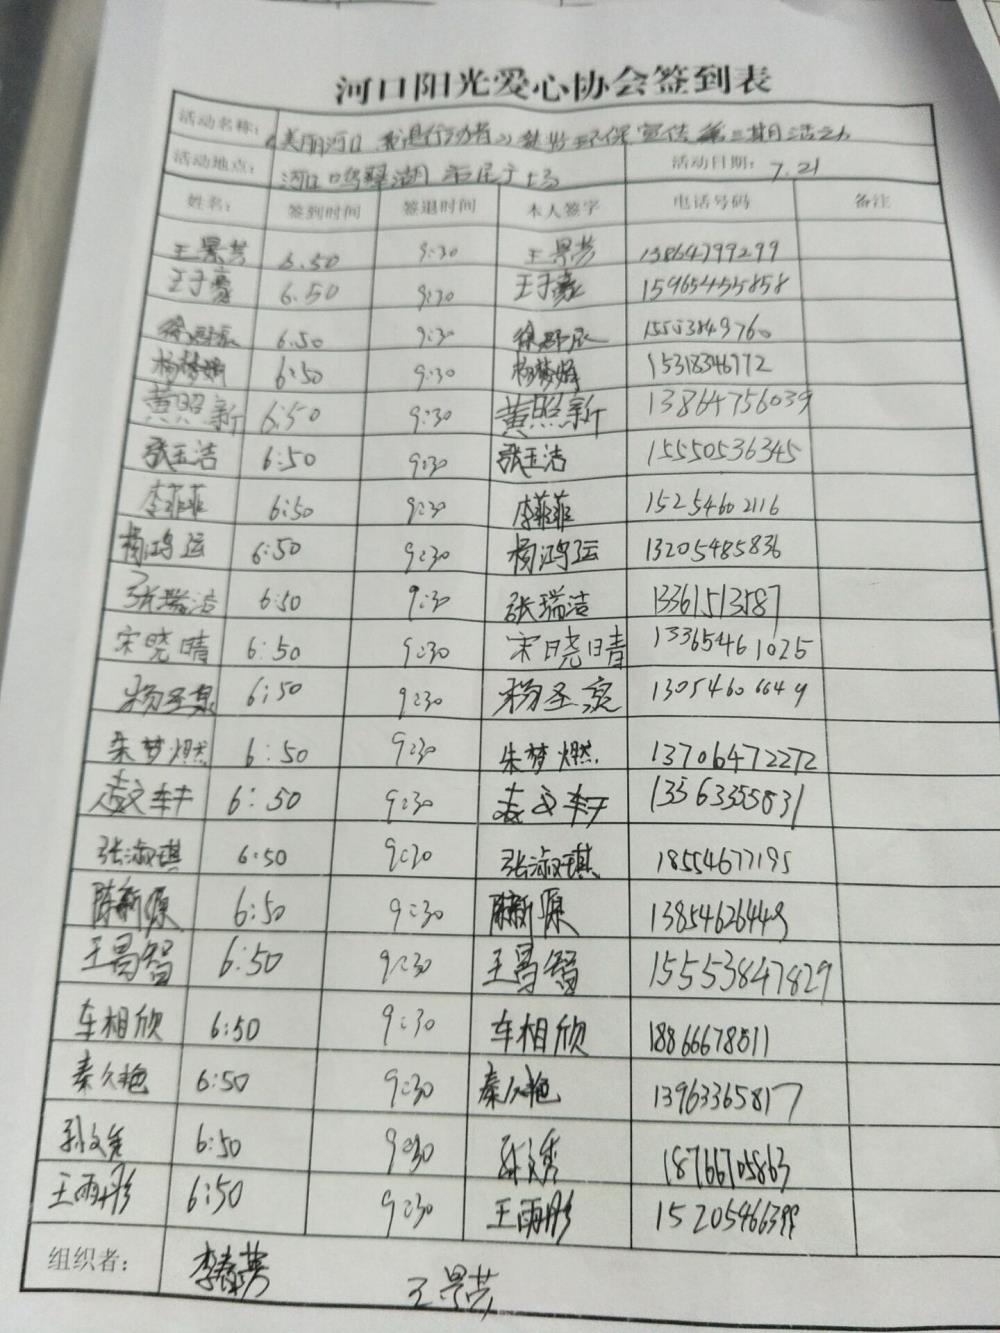 河口阳光爱心协会签到表
活动名称：《美丽河口 我是行动者》 环保宣传第三期活动
活动地点： 河口鸣翠湖 活动日期： 7.21
姓名： 签到时间 签退时间 本人签字 电话号码 备注
王景芳 6.50 9:30 王景芳 13864799299
王子豪 6.50 9:30 王子豪 15965455858
徐 6.50 9:30 徐 15553849760
杨梦婷 6:50 9:30 杨梦婷 15318346772
黄照新 6:50 9:30 黄照新 13864756039
张玉洁 6:50 9:30 张玉洁 15550536345
李菲菲 6:50 9:30 李菲菲 15254602116
杨鸿运 6:50 9:30 杨鸿运 13205485836
张瑞洁 6:50 9:30 张瑞洁 13361513587
宋晓晴 6:50 9:30 宋晓晴 13365461025
杨圣泉 6:50 9:30 杨圣泉 13054606649
朱梦燃 6:50 9:30 朱梦燃 13706472272
文轩 6:50 9:30 文轩 13563355831
张淑琪 6:50 9:30 张淑琪 18554677195
陈新源 6:50 9:30 陈新源 13854626449
王昌智 6:50 9:30 王昌智 15553847829
车相欣 6:50 9:30 车相欣 18866678511
秦久艳 6:50 9:30 秦久艳 13963365817
孙文秀 6:50 9:30 孙文秀 18766705863
王雨彤 6:50 9:30 王雨彤 15205466399
组织者： 李春英 王景芳